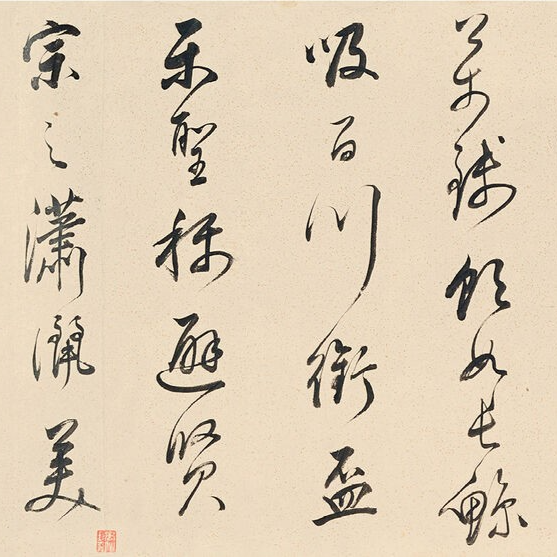 萬錢飲如長鯨
吸百川銜盃
樂聖稱避賢
宗之瀟灑美